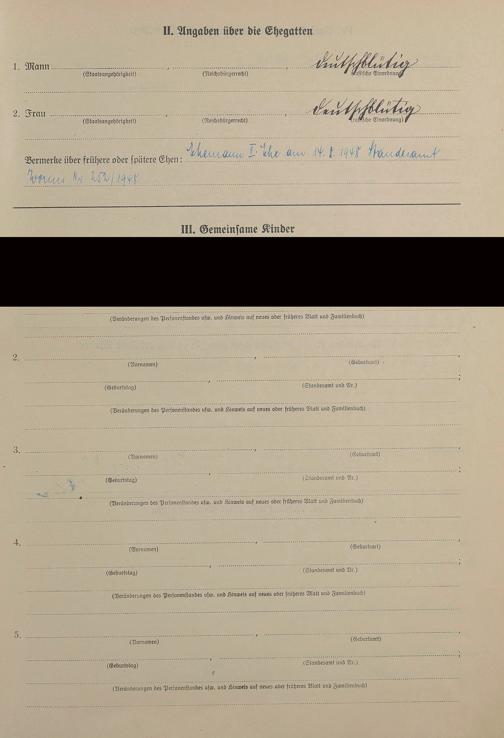 II. Angaben über die Ehegatten
1. Mann , , deutschblütig
(Staatsangehörigkeit) (Reichsbürgerrecht) (rassische Einordnung)
2. Frau , , deutschblütig
(Staatsangehörigkeit) (Reichsbürgerrecht) (rassische Einordnung)
Vermerke über frühere oder spätere Ehen: Ehemann I. Ehe am 14.8.1948 Standesamt
Worms Nr. 252/1948
III. Gemeinsame Kinder
(Veränderungen des Personenstandes usw. und Hinweis auf neues oder früheres Blatt und Familienbuch)
2. ,
(Vornamen) (Geburtsort)
, ;
(Geburtstag) (Standesamt und Nr.)
(Veränderungen des Personenstandes usw. und Hinweis auf neues oder früheres Blatt und Familienbuch)
3. ,
(Vornamen) (Geburtsort)
, ;
(Geburtstag) (Standesamt und Nr.)
(Veränderungen des Personenstandes usw. und Hinweis auf neues oder früheres Blatt und Familienbuch)
4. ,
(Vornamen) (Geburtsort)
, ;
(Geburtstag) (Standesamt und Nr.)
(Veränderungen des Personenstandes usw. und Hinweis auf neues oder früheres Blatt und Familienbuch)
5. ,
(Vornamen) (Geburtsort)
, ;
(Geburtstag) (Standesamt und Nr.)
(Veränderungen des Personenstandes usw. und Hinweis auf neues oder früheres Blatt und Familienbuch)